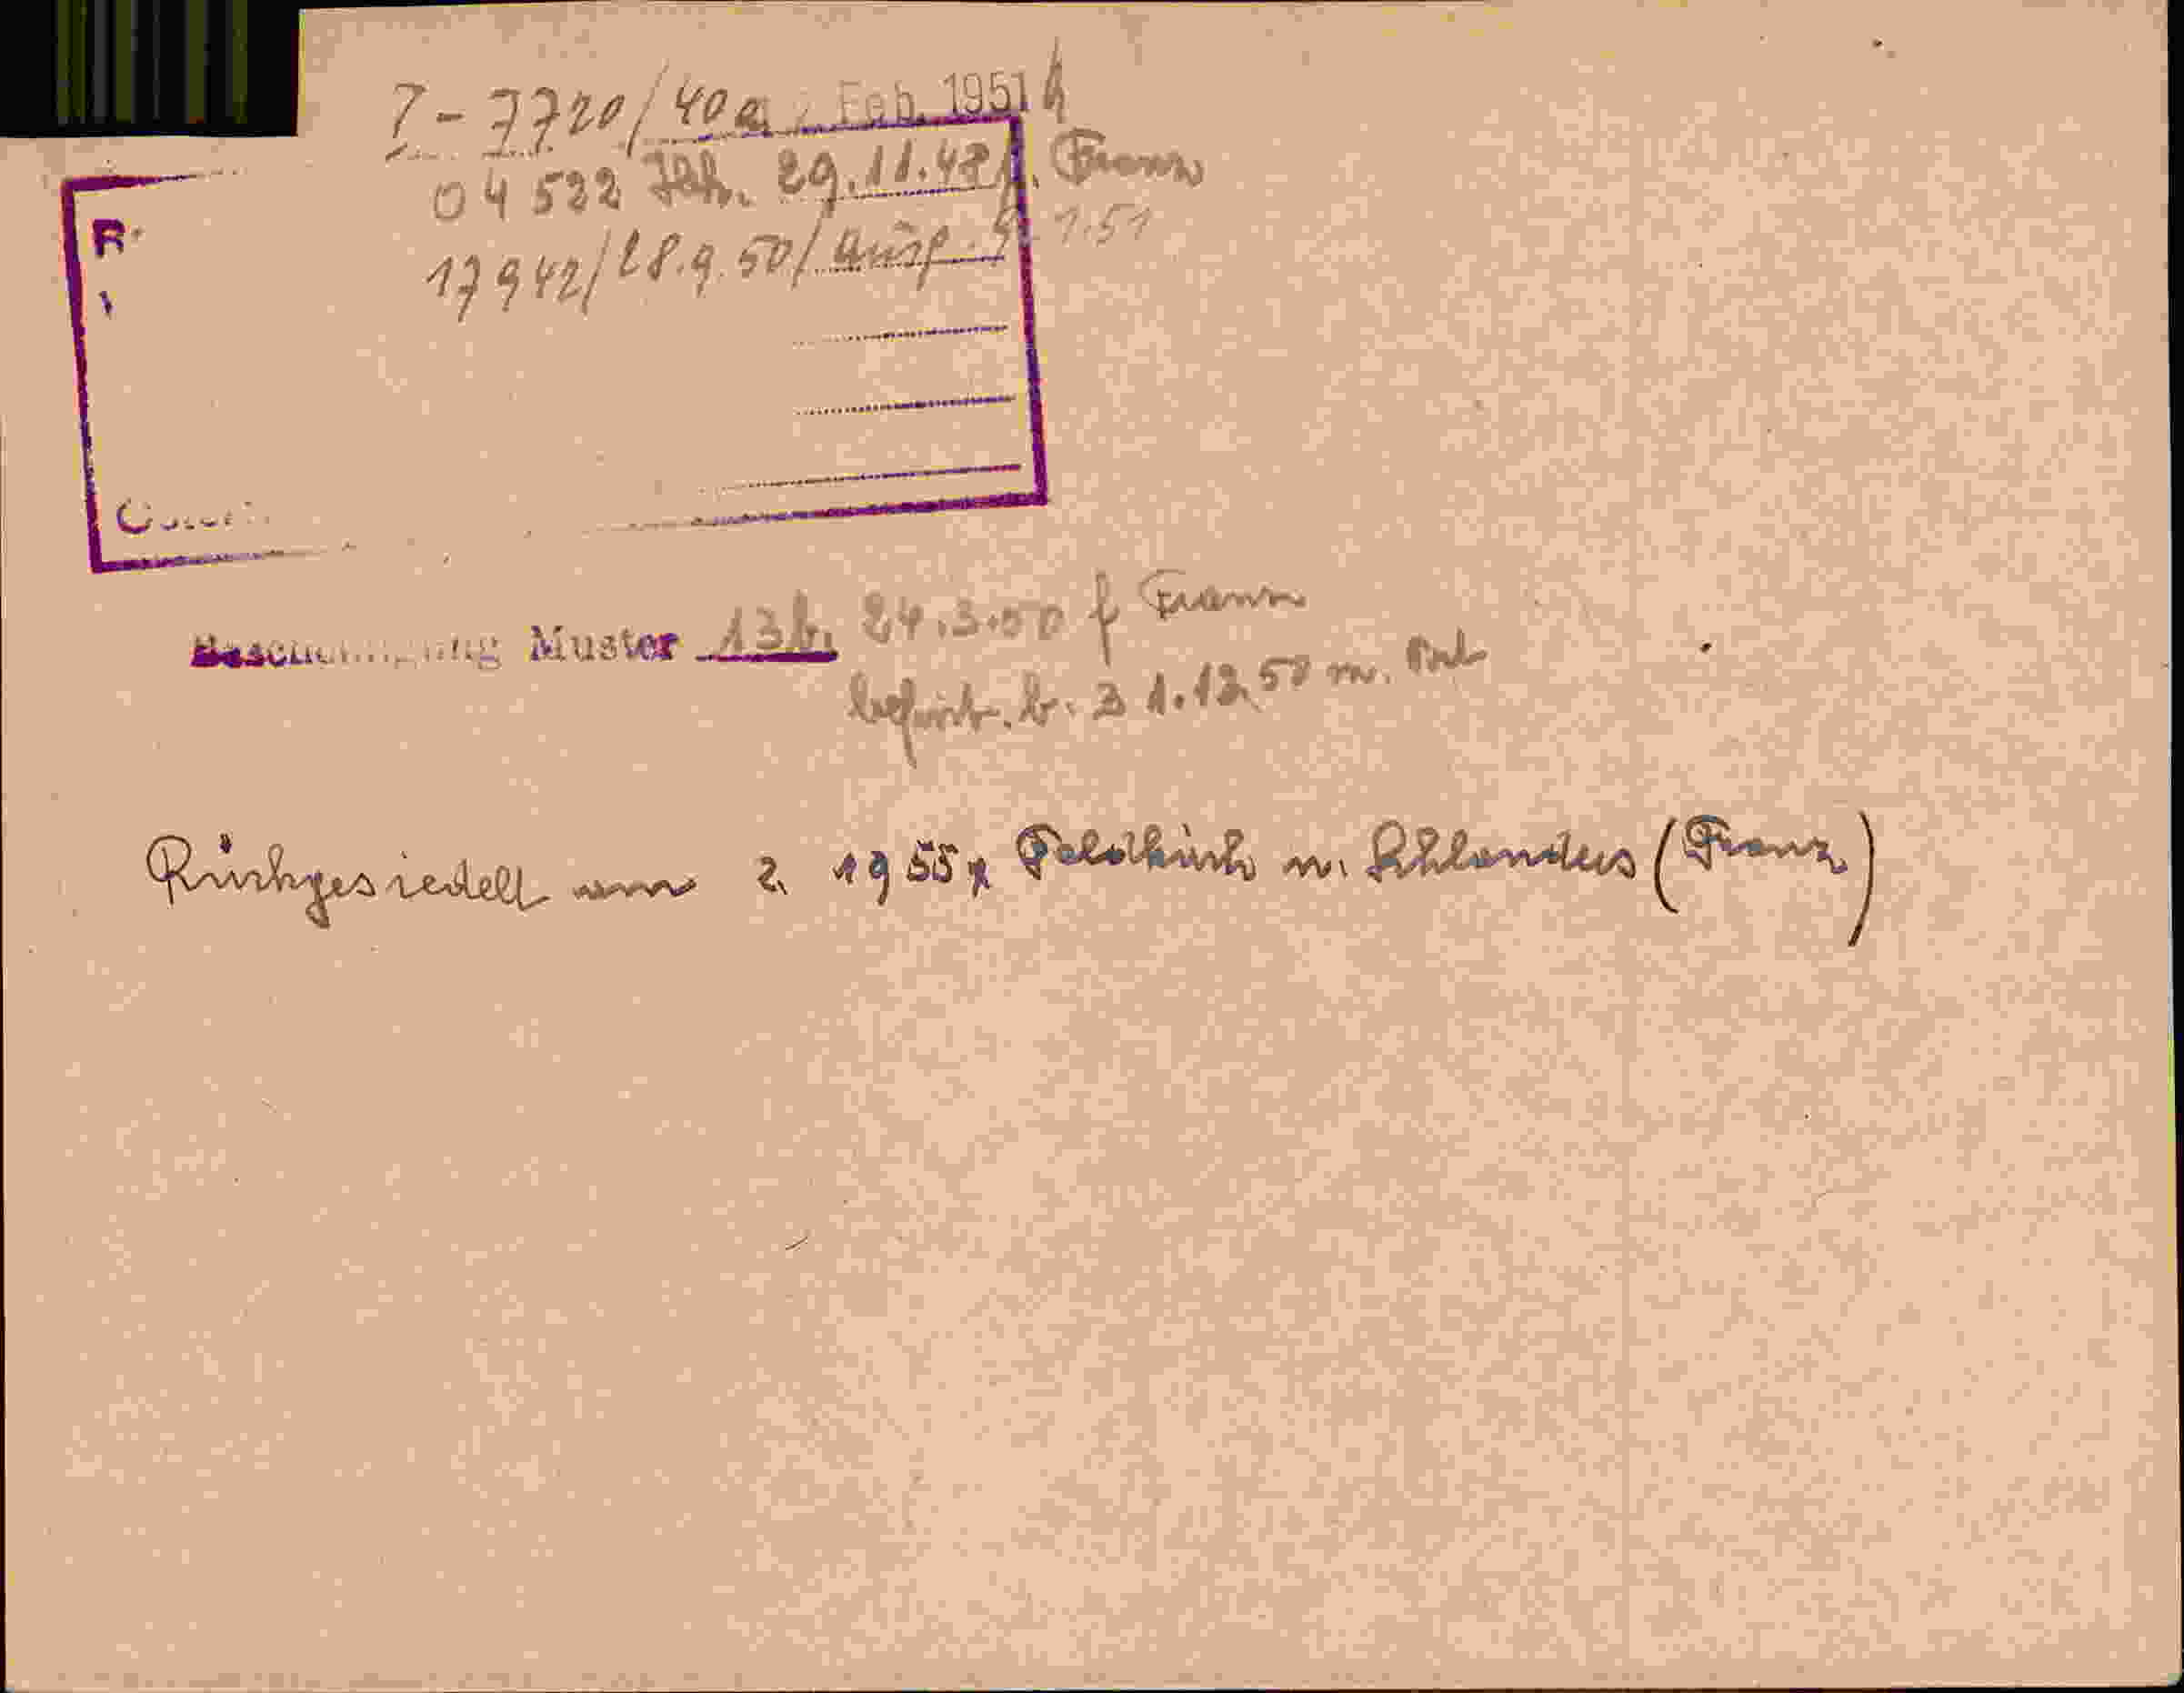 I-7720/40a Feb. 1951
04522 29.11.48 f. Franz
R
17942/28.9.50/ausg. 9.1.51
Bescheinigung Muster 13b. 24.3.50 f Franz
befrist. b. 31.12.50 m.
Rückgesiedelt am 2. 1955 Feldkirch n. Schlanders (Franz)